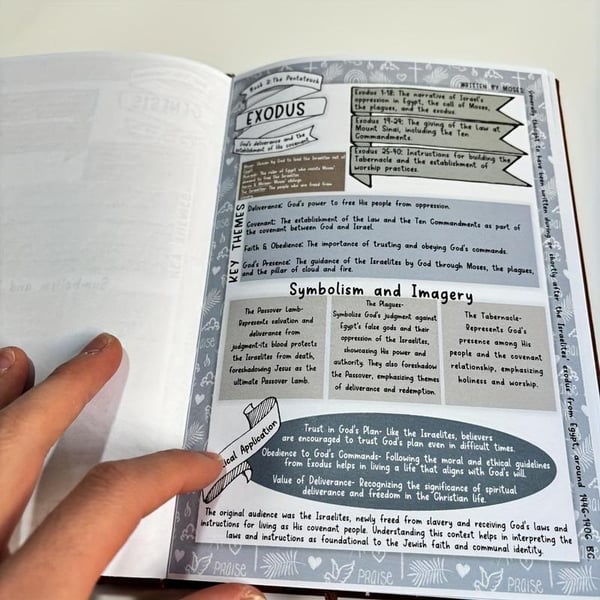 Book 2: The Pentateuch
EXODUS
God's deliverance and the
establishment of His covenant
WRITTEN BY MOSES
Exodus 1-18: The narrative of Israel's
oppression in Egypt, the call of Moses,
the plagues, and the exodus.
Exodus 19-24: The giving of the Law at
Mount Sinai, including the Ten
Commandments.
Exodus 25-40: Instructions for building the
Tabernacle and the establishment of
worship practices.
Moses: Chosen by God to lead the Israelites out of
Egypt.
Pharaoh: The ruler of Egypt who resists Moses'
demand to free the Israelites.
Aaron & Miriam: Moses' siblings
The Israelites: The people who are freed from
KEY THEMES
Deliverance: God's power to free His people from oppression.
Covenant: The establishment of the Law and the Ten Commandments as part of
the covenant between God and Israel.
Faith & Obedience: The importance of trusting and obeying God's commands.
God's Presence: The guidance of the Israelites by God through Moses, the plagues,
and the pillar of cloud and fire.
Symbolism and Imagery
The Passover Lamb-
Represents salvation and
deliverance from
judgment-its blood protects
the Israelites from death,
foreshadowing Jesus as the
ultimate Passover Lamb.
The Plagues-
Symbolize God's judgment against
Egypt's false gods and their
oppression of the Israelites,
showcasing His power and
authority. They also foreshadow
the Passover, emphasizing themes
of deliverance and redemption.
The Tabernacle-
Represents God's
presence among His
people and the covenant
relationship, emphasizing
holiness and worship.
ical Application
Trust in God's Plan- Like the Israelites, believers
are encouraged to trust God's plan even in difficult times.
Obedience to God's Commands- Following the moral and ethical guidelines
from Exodus helps in living a life that aligns with God's will.
Value of Deliverance- Recognizing the significance of spiritual
deliverance and freedom in the Christian life.
The original audience was the Israelites, newly freed from slavery and receiving God's laws and
instructions for living as His covenant people. Understanding this context helps in interpreting the
laws and instructions as foundational to the Jewish faith and communal identity.
thought to have been written during or shortly after the Israelites' exodus from Egypt, around 1446-1406 BC
PRAISE
PRAISE
PRAISE